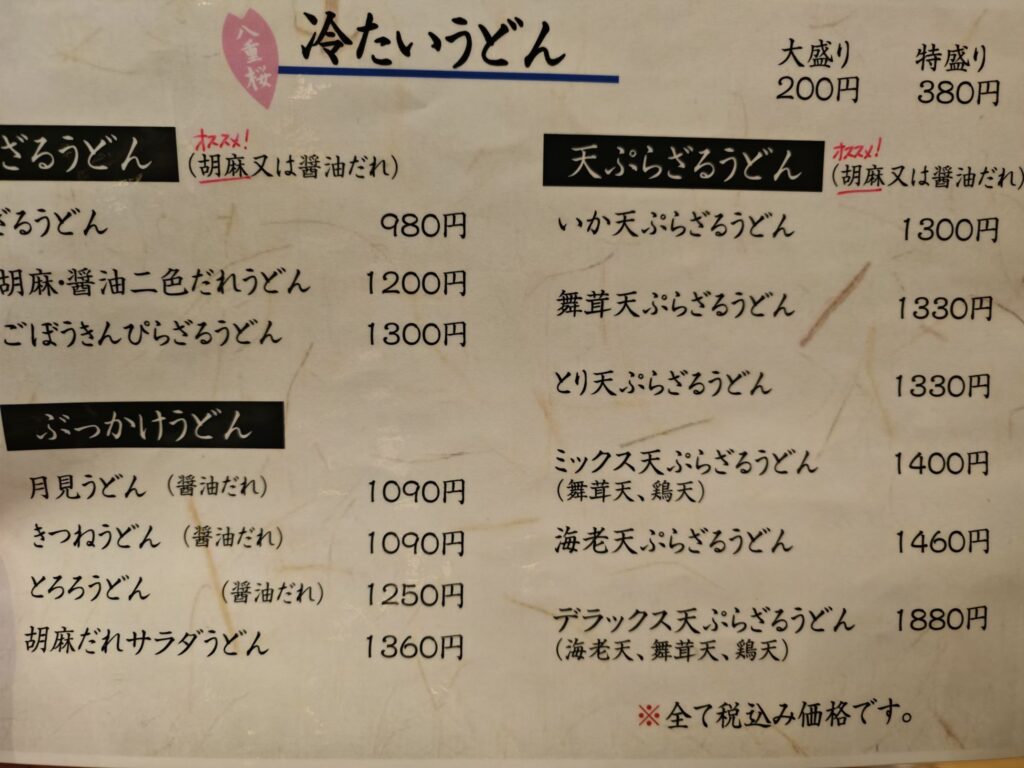 八重桜
冷たいうどん
大盛り 特盛り
200円 380円
ざるうどん
オススメ!
(胡麻又は醤油だれ)
ざるうどん 980円
胡麻・醤油二色だれうどん 1200円
ごぼうきんぴらざるうどん 1300円
ぶっかけうどん
月見うどん (醤油だれ) 1090円
きつねうどん (醤油だれ) 1090円
とろろうどん (醤油だれ) 1250円
胡麻だれサラダうどん 1360円
天ぷらざるうどん
オススメ!
(胡麻又は醤油だれ)
いか天ぷらざるうどん 1300円
舞茸天ぷらざるうどん 1330円
とり天ぷらざるうどん 1330円
ミックス天ぷらざるうどん 1400円
(舞茸天、鶏天)
海老天ぷらざるうどん 1460円
デラックス天ぷらざるうどん 1880円
(海老天、舞茸天、鶏天)
※全て税込み価格です。